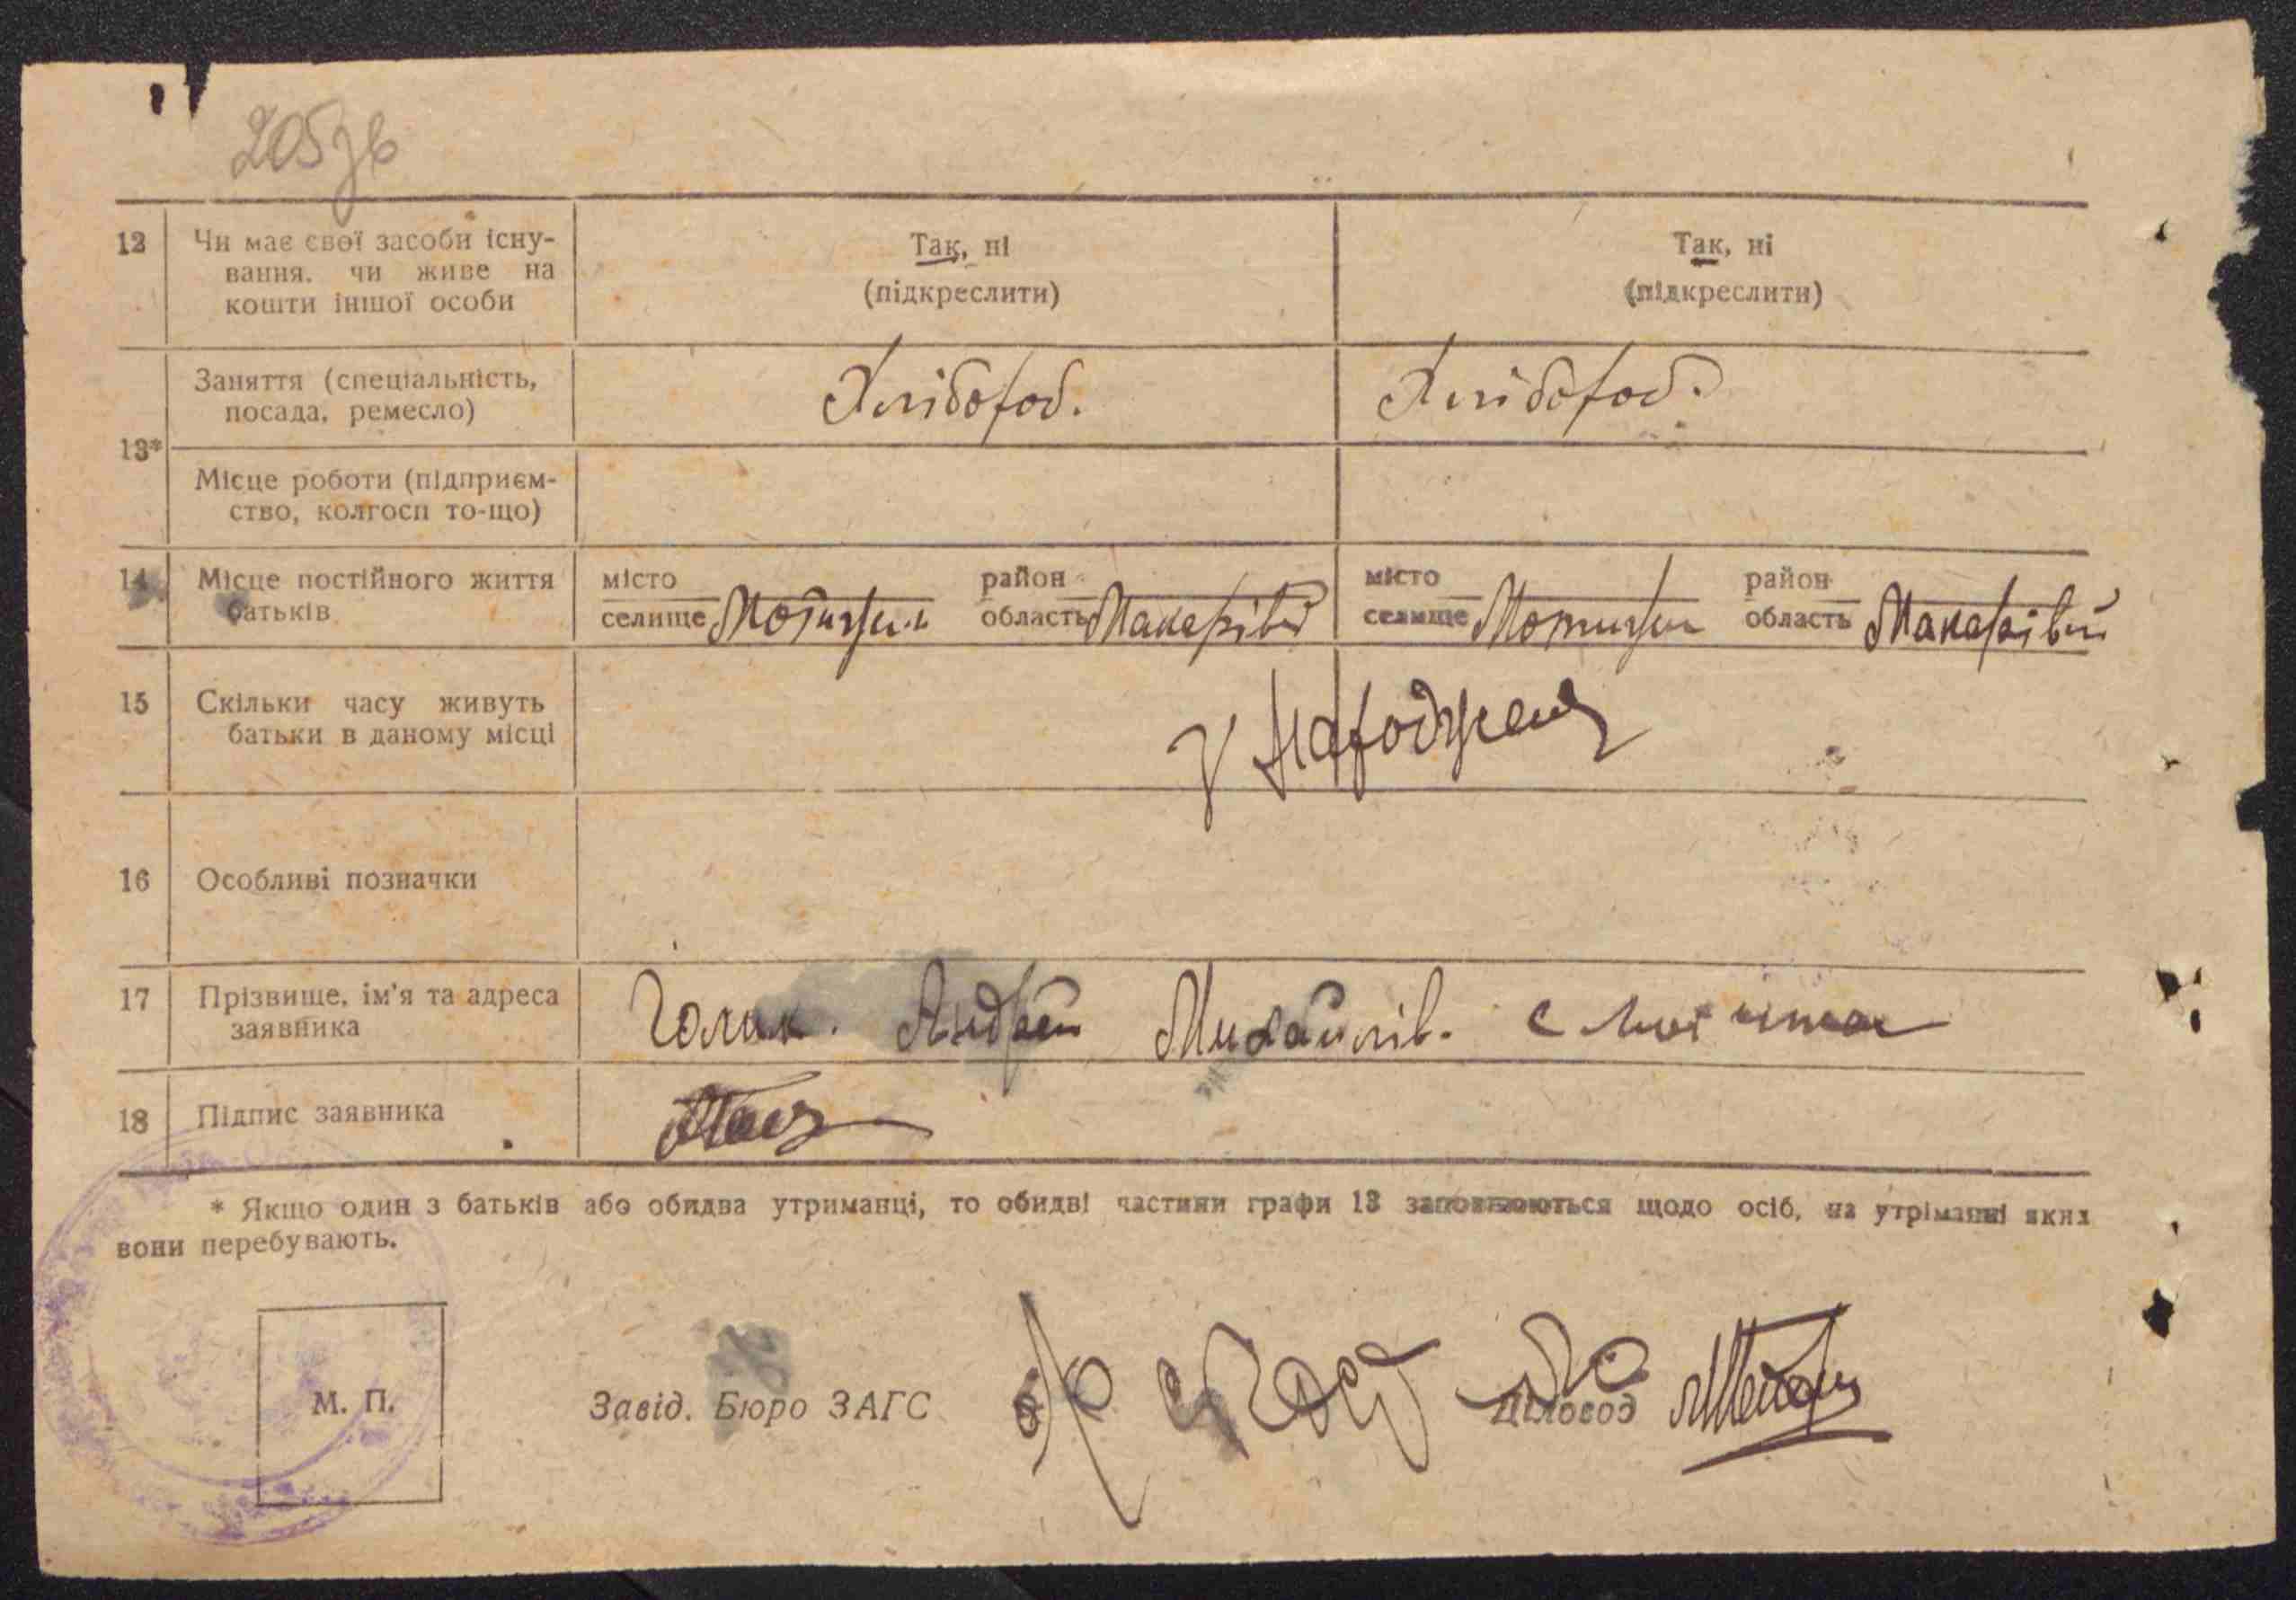 205зв
12 Чи має свої засоби існу-
вання. чи живе на
кошти іншої особи
Так, ні
(підкреслити)
Так, ні
(підкреслити)
13*
Заняття (спеціальність,
посада, ремесло)
Хлібороб.
Хлібороб.
Місце роботи (підприєм-
ство, колгосп то-що)
14 Місце постійного життя
батьків
місто
селище Мотижин
район
область Макарівй
місто
селище Мотижин
район
область Макарівй
15 Скільки часу живуть
батьки в даному місці
У нароження
16 Особливі позначки
17 Прізвище, ім'я та адреса
заявника
Голик. Андрей Михайлів. с
18 Підпис заявника
* Якщо один з батьків або обидва утриманці, то обидві частини графи 13 заповнюються щодо осіб, на утріманні яких
вони перебувають.
М. П.
Завід. Бюро ЗАГС
Діловод